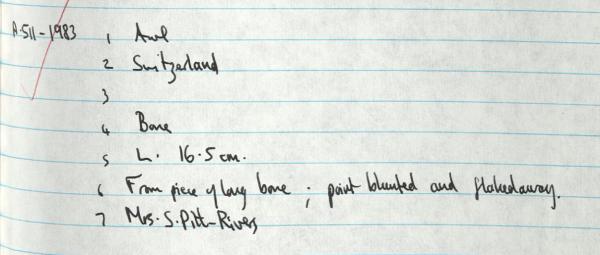 A.511-1983 1 Awl
2 Switzerland
3
4 Bone
5 L. 16.5 cm.
6 From piece of long bone ; point blunted and flaked away.
7 Mrs. S. Pitt-Rivers